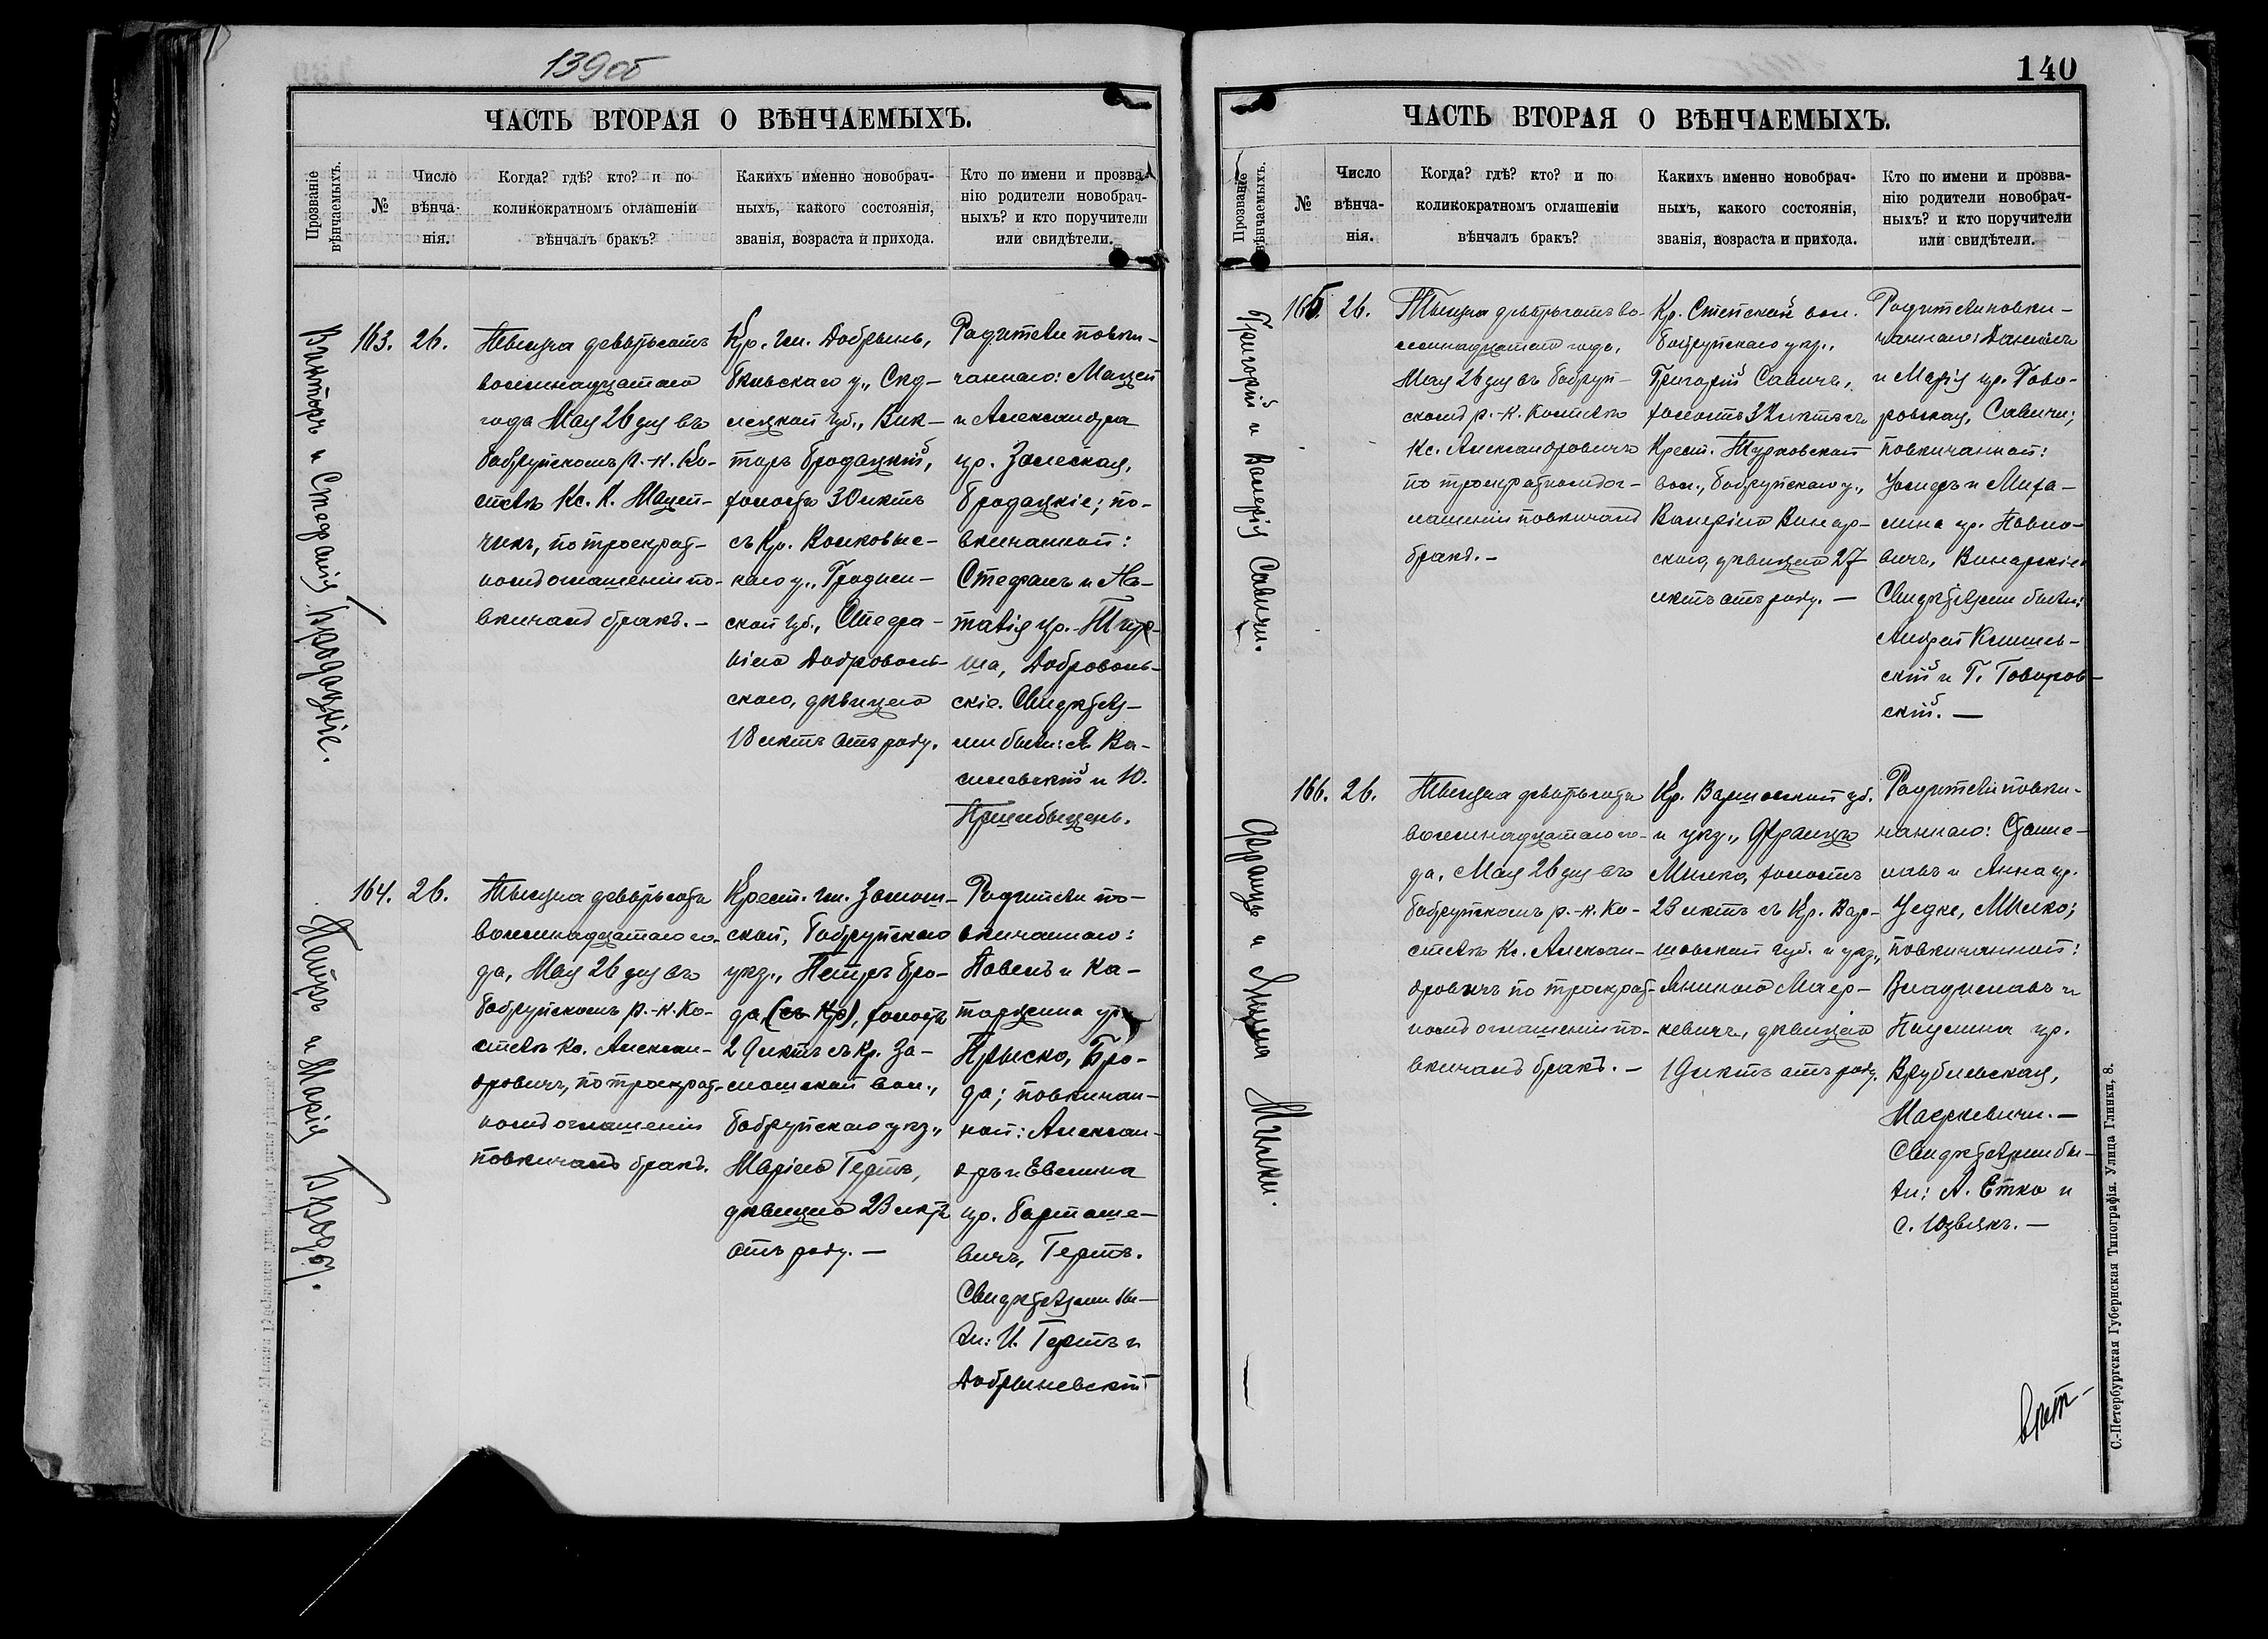 139об
ЧАСТЬ ВТОРАЯ О ВѢНЧАЕМЫХЪ.
Прозваніе вѣнчаемыхъ.
№
Число вѣнча-
нія.
Когда? гдѣ? кто? и по
коликократномъ оглашеніи
вѣнчалъ бракъ?
Какихъ именно новобрач-
ныхъ, какого состоянія,
званія, возраста и прихода.
Кто по имени и прозва-
нію родители новобрач-
ныхъ? и кто поручители
или свидѣтели.
Викторъ и Стефанія Бродацкіе.
163. 26.
Тысяча девятьсотъ
восемнадцатаго
года Мая 26 дня въ
Бобруйскомъ р.-к. Ко-
стелѣ Кс. К. Мацей-
чикъ, по троекрат-
номъ оглашеніи по-
вѣнчалъ бракъ. —
Кр. гм. Добрынь,
Бѣльскаго у., Сѣд-
лецкой губ., Вик-
торъ Бродацкій,
холостъ 30 лѣтъ
съ Кр. Волковыс-
каго у., Гроднен-
ской губ., Стефа-
нiею Доброволь-
скою, дѣвицею
18 лѣтъ отъ роду.
Родители повѣн-
чаннаго: Мацей
и Александра
ур. Залеская,
Бродацкіе; по-
вѣнчанной:
Стефанъ и На-
талія ур.
Доброволь-
скіе. Свидѣтеля-
ми были: А. Ва-
силевскій и Ю.
Пришибыцень.
Петръ и Марія Броды.
164. 26.
Тысяча девятьсотъ
восемнадцатаго го-
да, Мая 26 дня въ
Бобруйскомъ р.-к. Ко-
стелѣ Кс. Алексан-
дровичъ, по троекрат-
номъ оглашеніи
повѣнчалъ бракъ.
Крест. гм. Замош-
ской, Бобруйскаго
уѣз., Петръ Бро-
да, (съ Кр), холостъ
29 лѣтъ съ Кр. За-
мошской вол.,
Бобруйскаго уѣз.,
Маріею Гертъ,
дѣвицею 23 лѣтъ
отъ роду. —
Родители по-
вѣнчаннаго:
Павелъ и Ка-
таржина ур.
Прыско, Бро-
да; повѣнчан-
ной: Алексан-
дръ и Евелина
ур. Барташе-
вичъ, Гертъ.
Свидѣтелями бы-
ли: И. Гертъ и
Добрыневскій
140
ЧАСТЬ ВТОРАЯ О ВѢНЧАЕМЫХЪ.
Прозваніе вѣнчаемыхъ.
№
Число вѣнча-
нія.
Когда? гдѣ? кто? и по
коликократномъ оглашеніи
вѣнчалъ бракъ?
Какихъ именно новобрач-
ныхъ, какого состоянія,
званія, возраста и прихода.
Кто по имени и прозва-
нію родители новобрач-
ныхъ? и кто поручители
или свидѣтели.
Григорій и Валерія Савичи.
165. 26.
Тысяча девятьсотъ во-
семнадцатаго года,
Мая 26 дня въ Бобруй-
скомъ р.-к. Костелѣ
Кс. Александровичъ
по троекратномъ ог-
лашеніи повѣнчалъ
бракъ. —
Кр. Степской вол.
Бобруйскаго уѣз.,
Григорій Савичъ,
холостъ 32 лѣтъ съ
Крест. Турковской
вол., Бобруйскаго у.,
Валеріею Винар-
скою, дѣвицею 27
лѣтъ отъ роду. —
Родители повѣн-
чаннаго: Даніилъ
и Марія ур. Гово-
ровская, Савичи;
повѣнчанной:
Іосифъ и Миха-
лина ур. Павло-
вичъ, Винарскіе.
Свидѣтелями были:
Андрей Климъ-
скій и Г. Говоров-
скій. —
Францъ и Янина Милки.
166. 26.
Тысяча девятьсотъ
восемнадцатаго го-
да, Мая 26 дня въ
Бобруйскомъ р.-к. Ко-
стелѣ Кс. Алексан-
дровичъ по троекрат-
номъ оглашеніи по-
вѣнчалъ бракъ. —
Кр. Варшавской губ.
и уѣз., Францъ
Милко, холостъ
23 лѣтъ съ Кр. Вар-
шавской губ. и уѣз.,
Яниною Мацке-
вичъ, дѣвицею
19 лѣтъ отъ роду.
Родители повѣн-
чаннаго: Стани-
славъ и Анна ур.
Милко;
повѣнчанной:
Владиславъ и
Паулина ур.
Врублевская,
Мацкевичи. —
Свидѣтелями бы-
ли: А. Етко и
С. Юзвякъ. —
С.-Петербургская Губернская Типографія. Улица Глинки, 8.